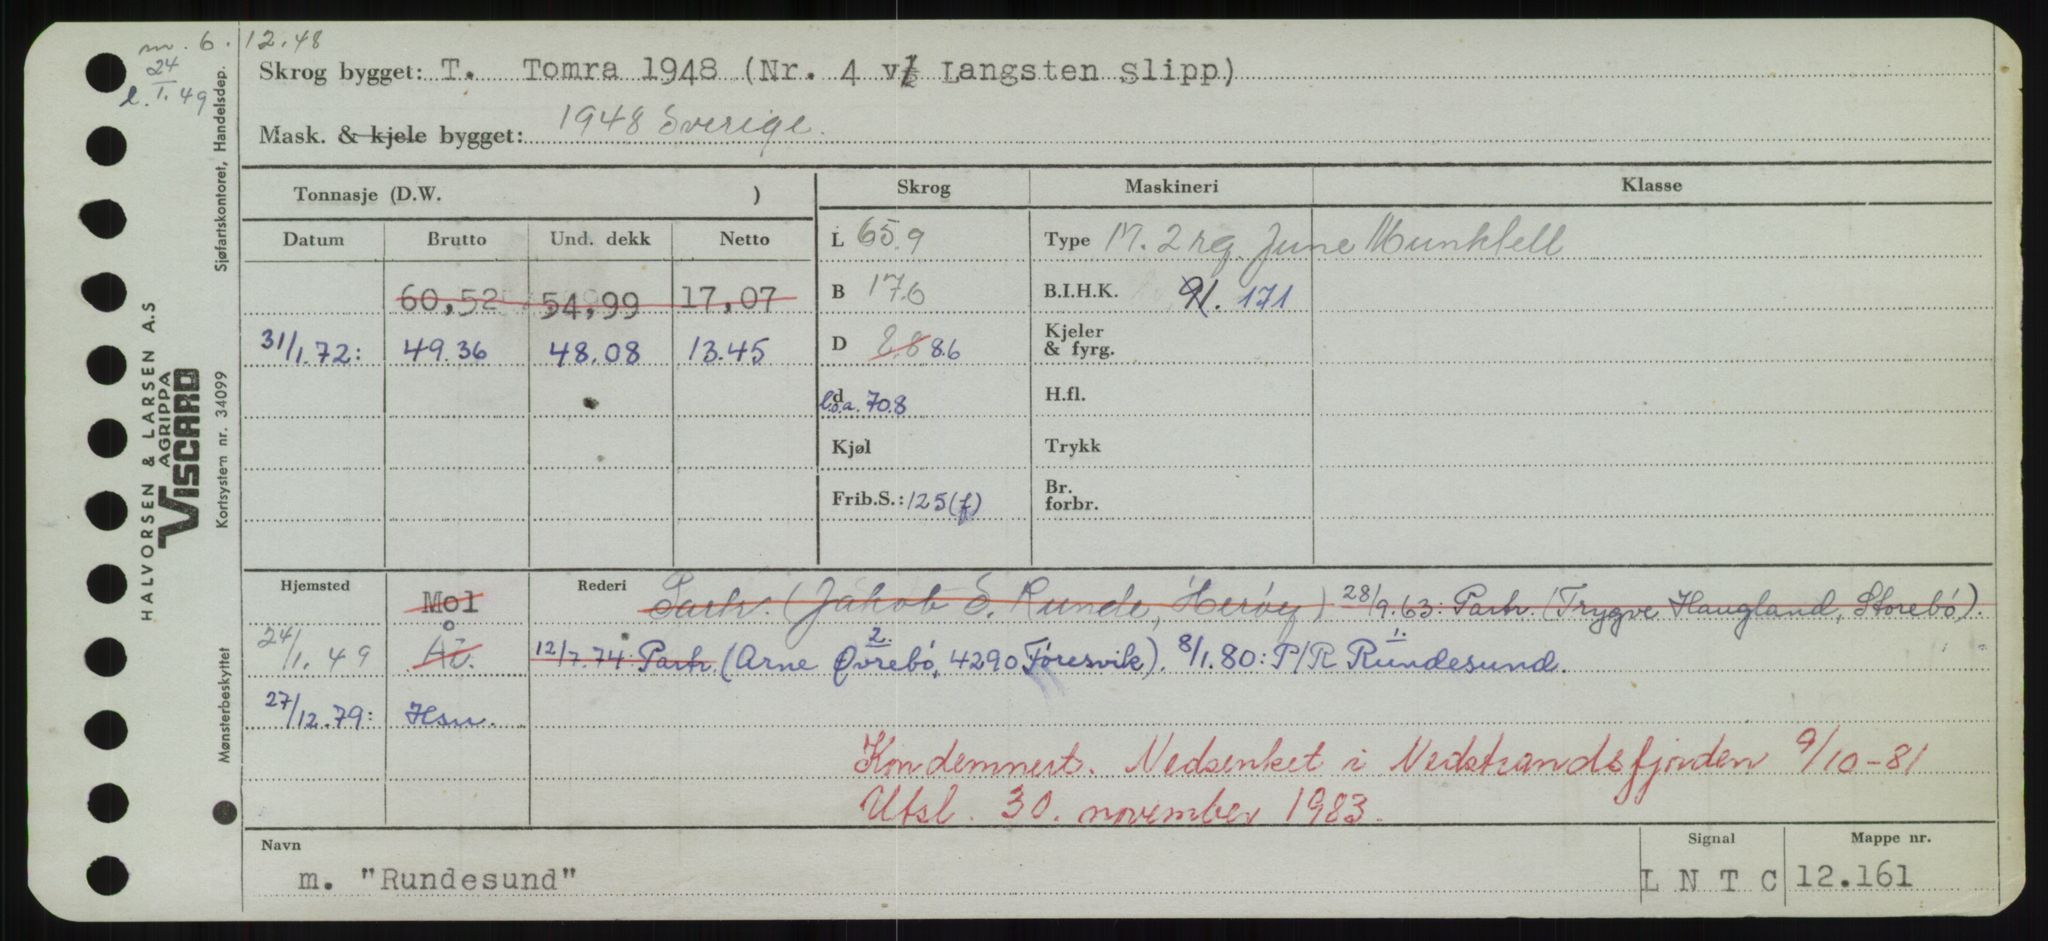 m. 6.12.48
24
l. 1. 49
Skrog bygget: T. Tomra 1948 (Nr. 4 v/ Langsten Slipp)
Mask. & kjele bygget: 1948 Sverige.
Tonnasje (D.W. )
Skrog
Maskineri
Klasse
Datum Brutto Und. dekk Netto
60,52 54,99 17,07
31/1.72: 49.36 48.08 13.45
L 65.9
B 17.6
D 8.8 8.6
d
l.o.a. 70.8
Kjøl
Frib.S.: 125(f)
Type M. 2 rg. June Munktell
B.I.H.K. 91. 171
Kjeler
& fyrg.
H.fl.
Trykk
Br.
forbr.
Hjemsted
Mol
24/1.49 Åv.
27/12.79: Hsn.
Rederi Partr. (Jakob S. Runde, Herøy) 28/9.63: Partr. (Trygve Haugland, Storebø).
12/7.74: Partr. (Arne Øvrebø, 4290 Føresvik). 8/1.80: P/R Rundesund.
2. 1.
Kondemnert. Nedsenket i Nedstrandsfjorden 9/10-81
Utsl. 30. november 1983.
Navn
m. "Rundesund"
Signal
L N T C
Mappe nr.
12.161
HALVORSEN & LARSEN A.S
AGRIPPA
VISCARD
Sjøfartskontoret, Handelsdep.
Kortsystem nr. 34099
Mønsterbeskyttet